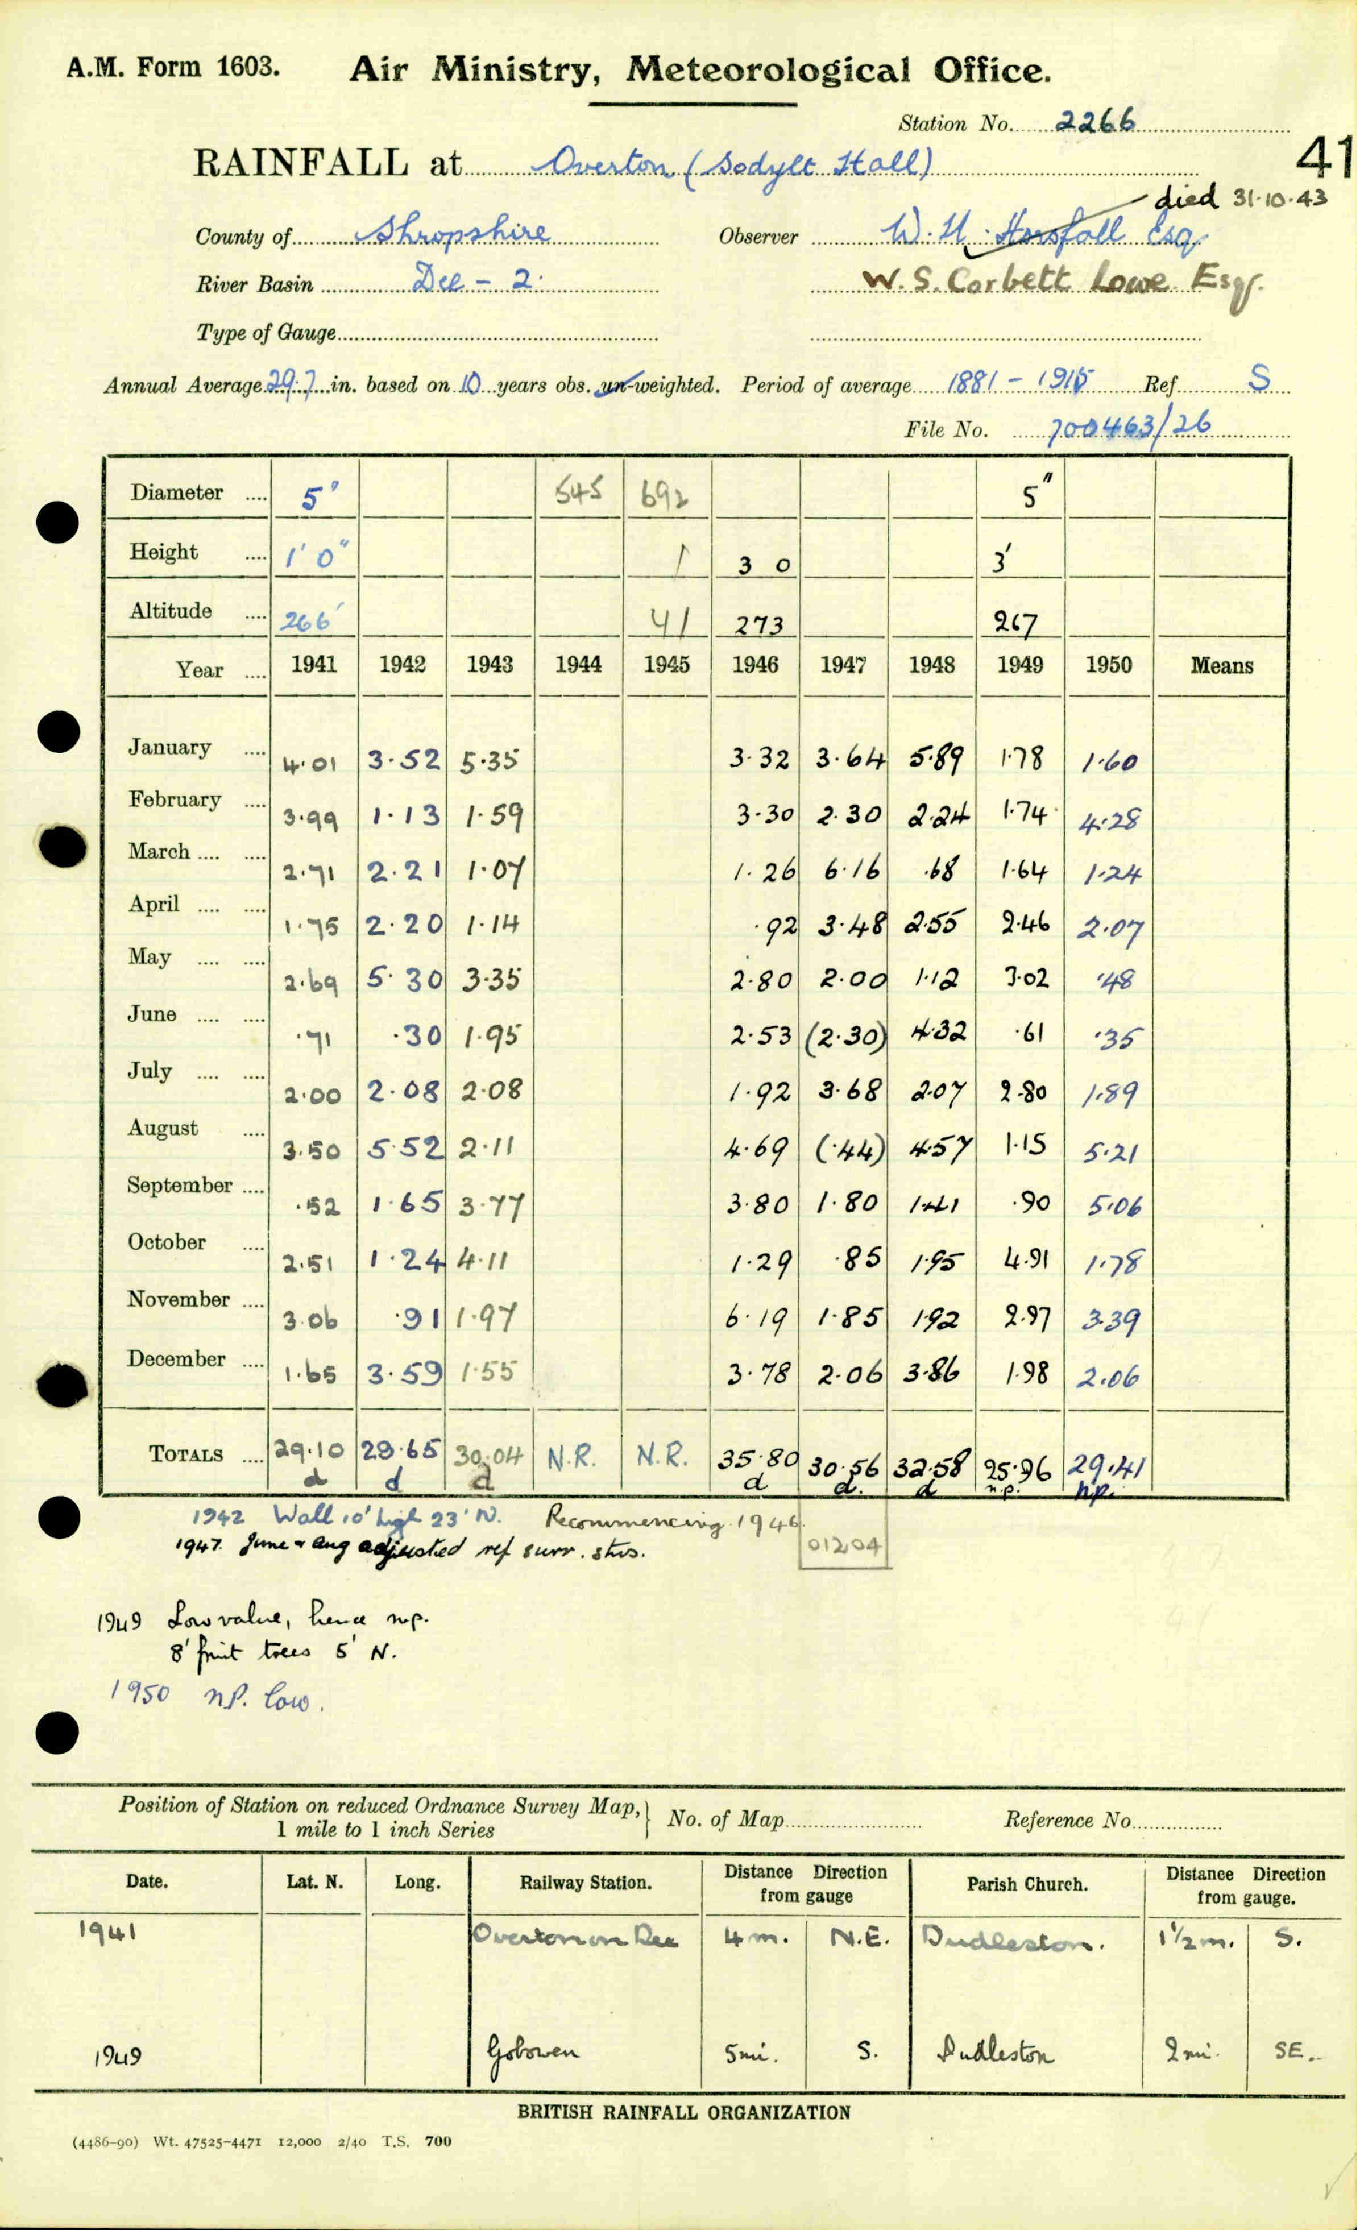 A.M. Form 1603. Air Ministry, Meteorological Office.
Station No. 2266
41
RAINFALL at Overton (Sodylt Hall)
died 31·10·43
County of Shropshire Observer W. H. Horsfall Esq
River Basin Dee - 2. W. S. Corbett Lowe Esqr.
Type of Gauge
Annual Average 29.7 in. based on 10 years obs. un-weighted. Period of average 1881 - 1915 Ref. S
File No. 700463/26
Diameter .... 5" 545 692 5"
Height .... 1' 0" 1 3 0 3'
Altitude .... 266' 41 273 267
Year .... 1941 1942 1943 1944 1945 1946 1947 1948 1949 1950 Means
January .... 4·01 3·52 5·35 3·32 3·64 5·89 1·78 1·60
February .... 3·99 1·13 1·59 3·30 2·30 2·24 1·74 4·28
March .... .... 2·71 2·21 1·07 1·26 6·16 ·68 1·64 1·24
April .... .... 1·75 2·20 1·14 ·92 3·48 2·55 2·46 2·07
May .... .... 2·69 5·30 3·35 2·80 2·00 1·12 3·02 ·48
June .... .... ·71 ·30 1·95 2·53 (2·30) 4·32 ·61 ·35
July .... .... 2·00 2·08 2·08 1·92 3·68 2·07 2·80 1·89
August .... 3·50 5·52 2·11 4·69 (·44) 4·57 1·15 5·21
September .... ·52 1·65 3·77 3·80 1·80 1·41 ·90 5·06
October .... 2·51 1·24 4·11 1·29 ·85 1·95 4·91 1·78
November .... 3·06 ·91 1·97 6·19 1·85 1·92 2·97 3·39
December .... 1·65 3·59 1·55 3·78 2·06 3·86 1·98 2·06
TOTALS .... 29·10 29·65 30·04 N.R. N.R. 35·80 30·56 32·58 25·96 29·41
d d d d d. d n.p. n.p.
1942 Wall 10' high 23' N. Recommencing 1946.
1947. June & Aug adjusted ref surr. stns.
01204
1949 Low value, hence n.p.
8' fruit trees 5' N.
1950 n.p. low.
Position of Station on reduced Ordnance Survey Map,} No. of Map Reference No.
1 mile to 1 inch Series
Date. Lat. N. Long. Railway Station. Distance Direction from gauge Parish Church. Distance Direction from gauge.
1941 Overton on Dee 4 m. N.E. Dudleston. 1½ m. S.
1949 Gobowen 5 mi. S. Dudleston 2 mi. SE.
BRITISH RAINFALL ORGANIZATION
(4486-90) Wt. 47525-4471 12,000 2/40 T.S. 700